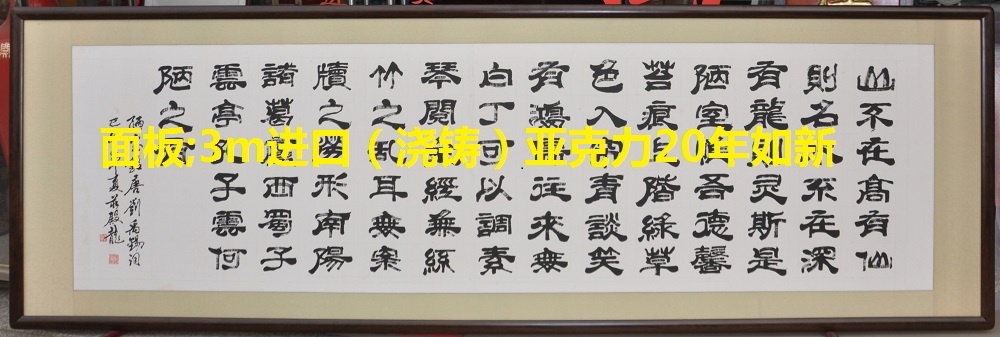 面板;3m进口（浇铸）亚克力20年如新
山不在高有仙
則名水不在深
有龍則靈斯是
陋室惟吾德馨
苔痕上階綠草
色入簾青談笑
有鴻儒往來無
白丁可以調素
琴閱金經無絲
竹之亂耳無案
牘之勞形南陽
諸葛廬西蜀子
雲亭孔子雲何
陋之有
唐劉禹錫詞
夏莊殿龍